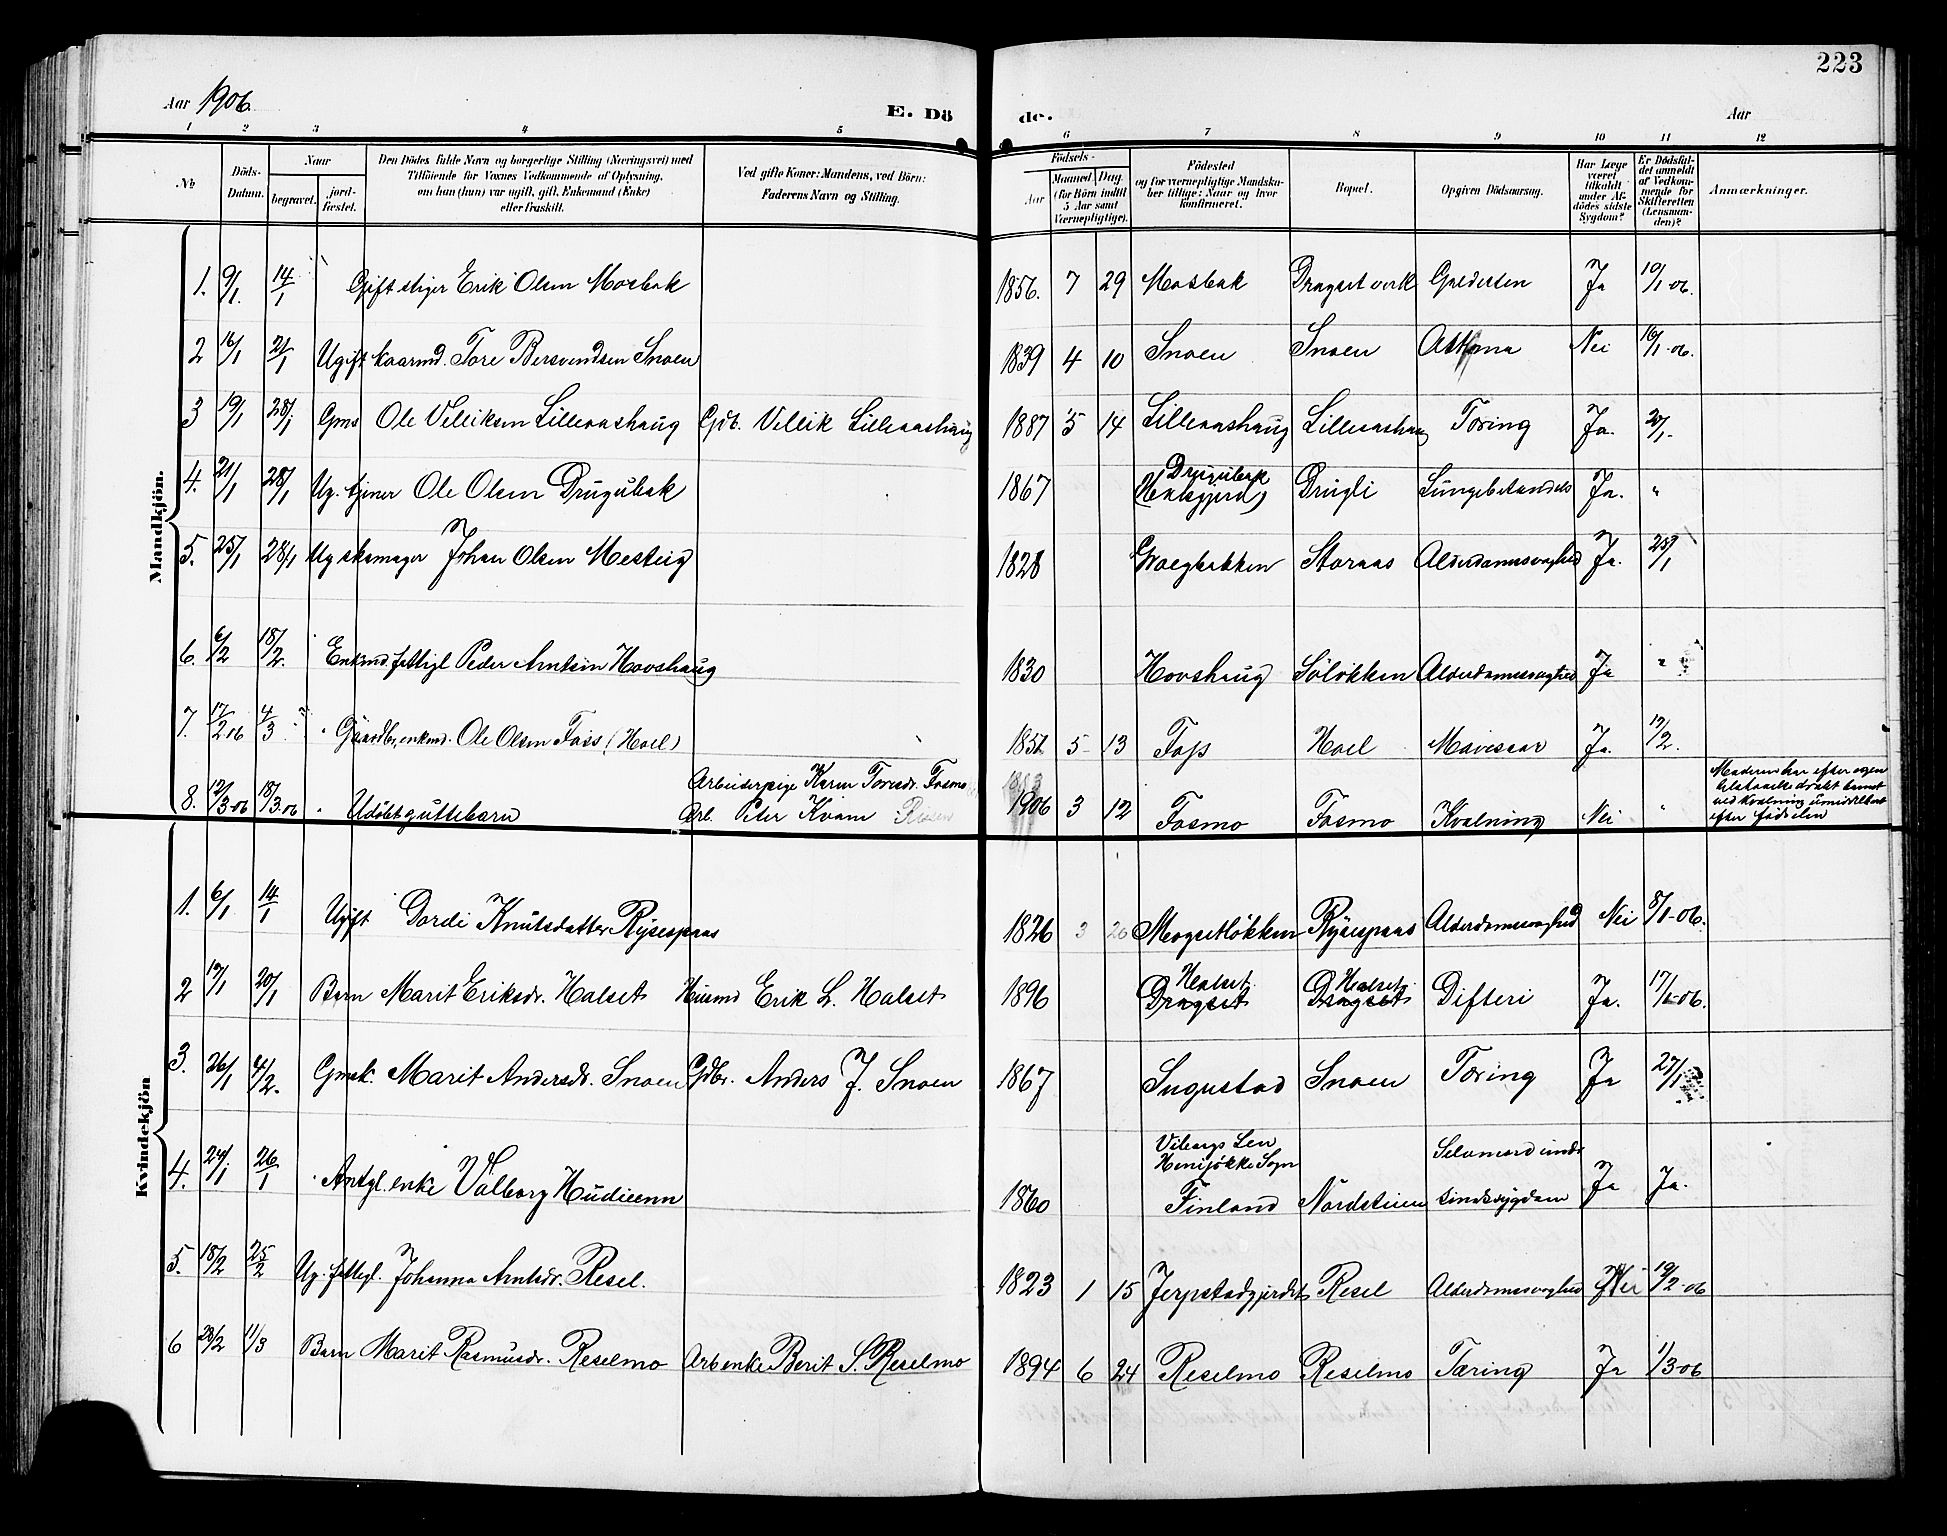 223
Aar 1906.
E. Dö de.
Aar
1 2 3 4 5 6 7 8 9 10 11 12
No
Döds-Datum.
Naar
begravet.
jord-fæstet.
Den Dödes fulde Navn og borgerlige Stilling (Næringsvei) med
Tilföiende for Voxnes Vedkommende af Oplysning,
om han (hun) var ugift, gift, Enkemand (Enke)
eller fraskilt.
Ved gifte Koner: Mandens, ved Börn:
Faderens Navn og Stilling.
Födsels-
Aar
Maaned Dag
(for Börn indtil
5 Aar samt
Værnepligtige).
Födested
og for værnepligtige Mandska-
ber tillige: Naar og hvor
konfirmeret.
Bopæl.
Opgiven Dödsaarsag.
Har Læge
været
tilkaldt
under Af-
dödes sidste
Sygdom?
Er Dödsfal-
det anmeldt
af Vedkom-
mende for
Skifteretten
(Lensman-
den)?
Anmærkninger.
Mandkjön.
1. 9/1. 14/1 Gift stiger Erik Olsen Mosbak 1856. 7 29 Mosbak Dragset verk Galdesten Ja 10/1 06.
2 16/1 21/1 Ugift kaarmd. Tore Bersvendsen Snoen 1839 4 10 Snoen Snoen Asthma Nei 16/1-06.
3 19/1 28/1 Gms Ole Villiksen Lilleaashaug Gdb. Villik Lilleaashaug 1887 5 14 Lilleaashaug Lilleaashaug Tæring Ja. 20/1-
4. 21/1 28/1 Ug. tjener Ole Olsen Drugubak 1867 Drugubak Drugli Lungebetændels Ja. "
5. 25/1 28/1 Ug skomager Johan Olsen Mesteig 1828 Storaas Alderdomssvaghed Ja. 25/1
6. 6/2 18/2. Enkmd. fattigl Peder Arntsen Hovshaug 1830 Hovshaug Soløkken Alderdomssvaghed Ja "
7. 17/2 06 4/3 Gaardbr, enkmd. Ole Olsen Foss (Hoel) 5 13 Foss Hoel Mavesaar Ja. 17/2.
8. 12/3-06 18/3.06 " Udöbt guttebarn Arbeiderpige Karen Toresdr. Fosmo
Arb. Peter Kvam 1906 3 12 Fosmo Fosmo Kvælning Nei " Moderen har efter egen
tilstaaelse dræbt barnet
ved kvælning umiddelbart
efter fødselen
Kvindekjön
1. 6/1 14/1 Ugift Dordi Knutsdatter Rysesplaas 1826 3 20 Mogsetløkken Alderdomssvaghed Nei 8/1-06.
2 17/1 20/1 Barn Marit Eriksdr. Halset Husmd Erik L. Halset 1896 Halset Dragset Halset Dragset Difteri Ja. 17/1-06.
3. 26/1 4/2. Gmsk. Marit Andersdr. Snoen Gdbr. Anders J. Snoen 1867 Sugustad Snoen Tæring Ja 27/1
4. 24/1 26/1 " Antgl. enke Valborg Hudieenn 1860 Viborgs Len
Sogn
Finland Nordsteien Selvmord under
sindssygdom Ja Ja.
5. 18/2 25/2 Ug. fattigl. Johanna Arntsdr. Resel. 1823 1 15 Jerpstadgjerdet Resel Alderdomssvaghed Nei 19/2-06
6 28/2 11/3 Barn Marit Rasmusdr. Reselmo Arb enke Berit S. Reselmo 1894 6 24 Reselmo Reselmo Tæring Ja 1/3-06